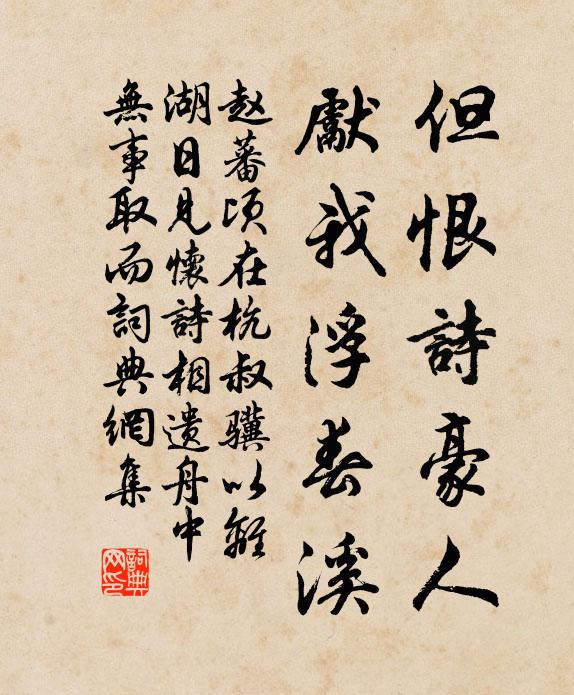 但恨詩豪人
獻我浮春溪
赵蕃頃在杭叔驥以離
湖日見懷詩相遺舟中
無事取而詞典網集
詞典网印